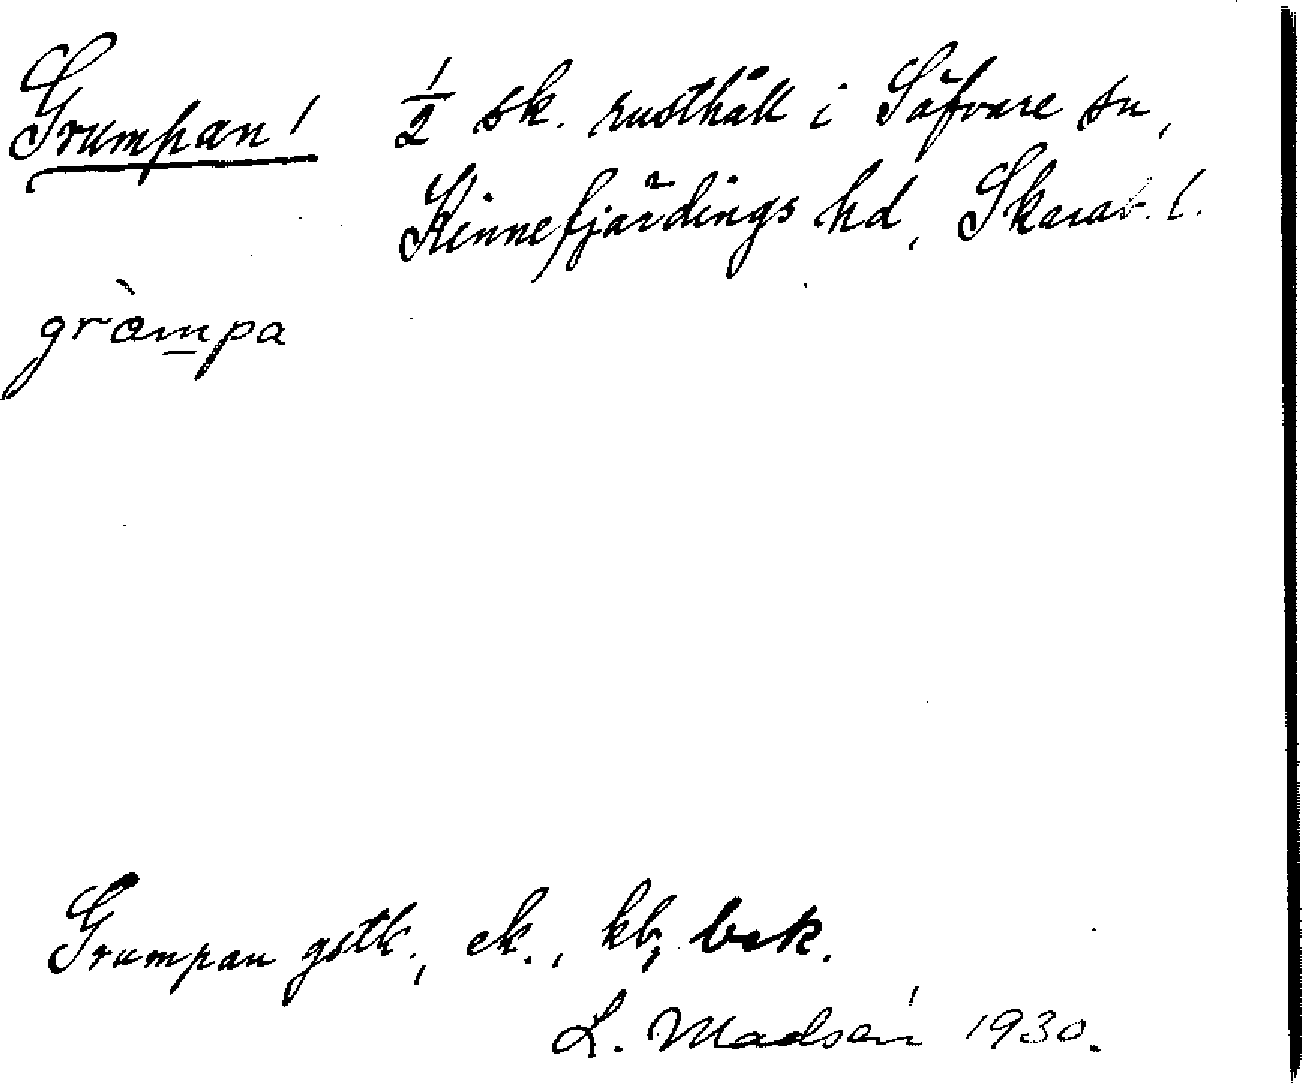 Grumpan! ½ sk. rusthåll i Säfvare sn,
Kinnefjärdings hd, Skarab. l.
gràmpa
Grumpan gstk., ek., kb, bek.
L. Madsén 1930.